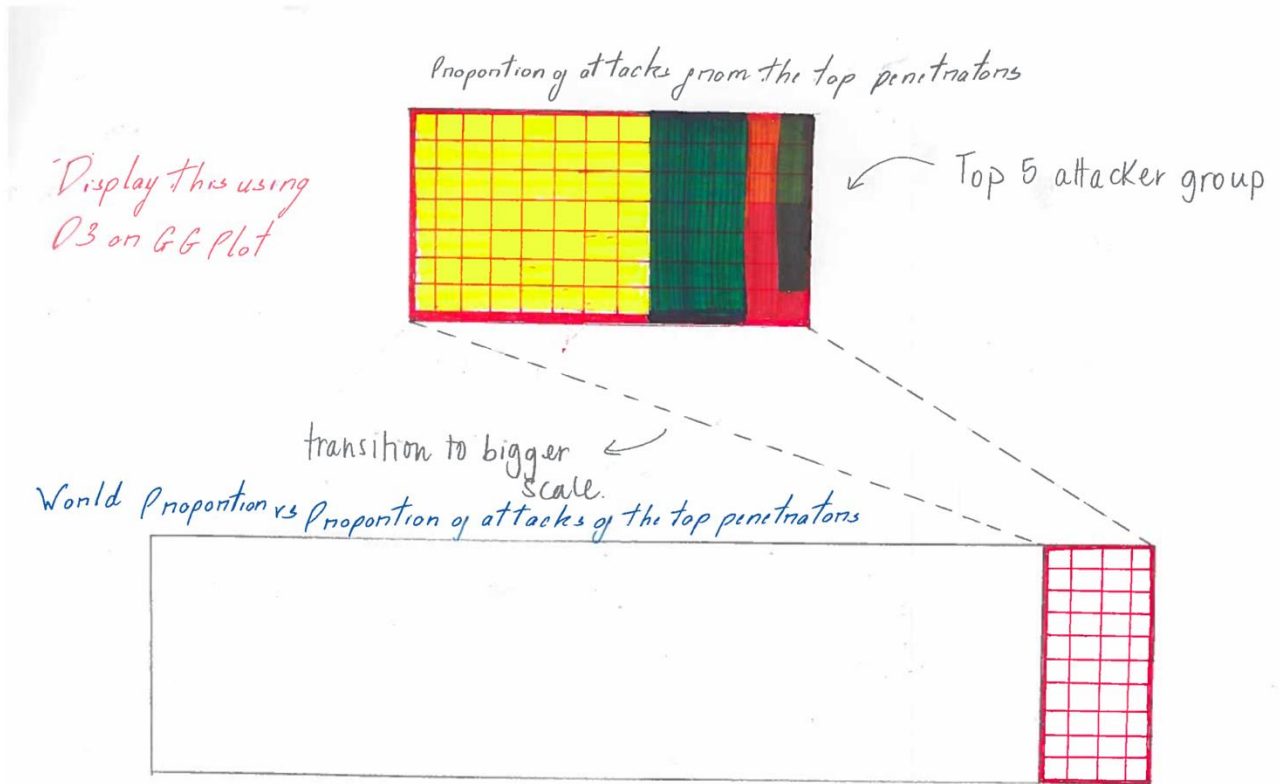 Proportion of attacks from the top penetrators
Display this using
D3 or GG Plot
Top 5 attacker group
transition to bigger
scale.
World Proportion vs Proportion of attacks of the top penetrators